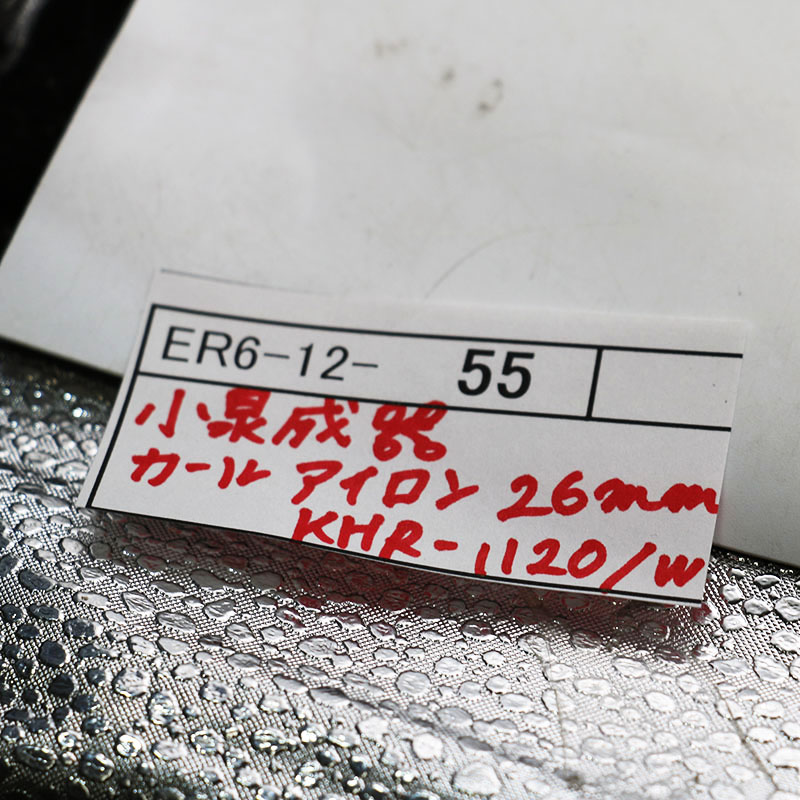 ER6-12- 55
小泉成器
カールアイロン 26mm
KHR-1120/W